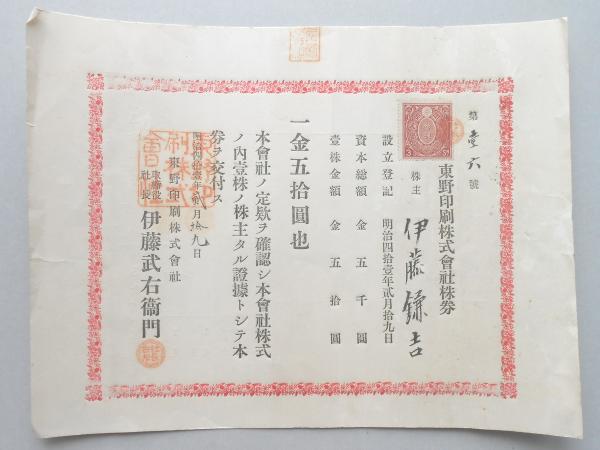 第壹六號
東野印刷株式會社株券
株主 伊藤鎌吉
設立登記 明治四拾壹年貳月拾九日
資本總額 金五千圓
壹株金額 金五拾圓
一金五拾圓也
本會社ノ定欵ヲ確認シ本會社株式
ノ内壹株ノ株主タル證據トシテ本
券ヲ交付ス
明治四拾壹年貳月拾九日
東野印刷株式會社
取締役社長 伊藤武右衞門